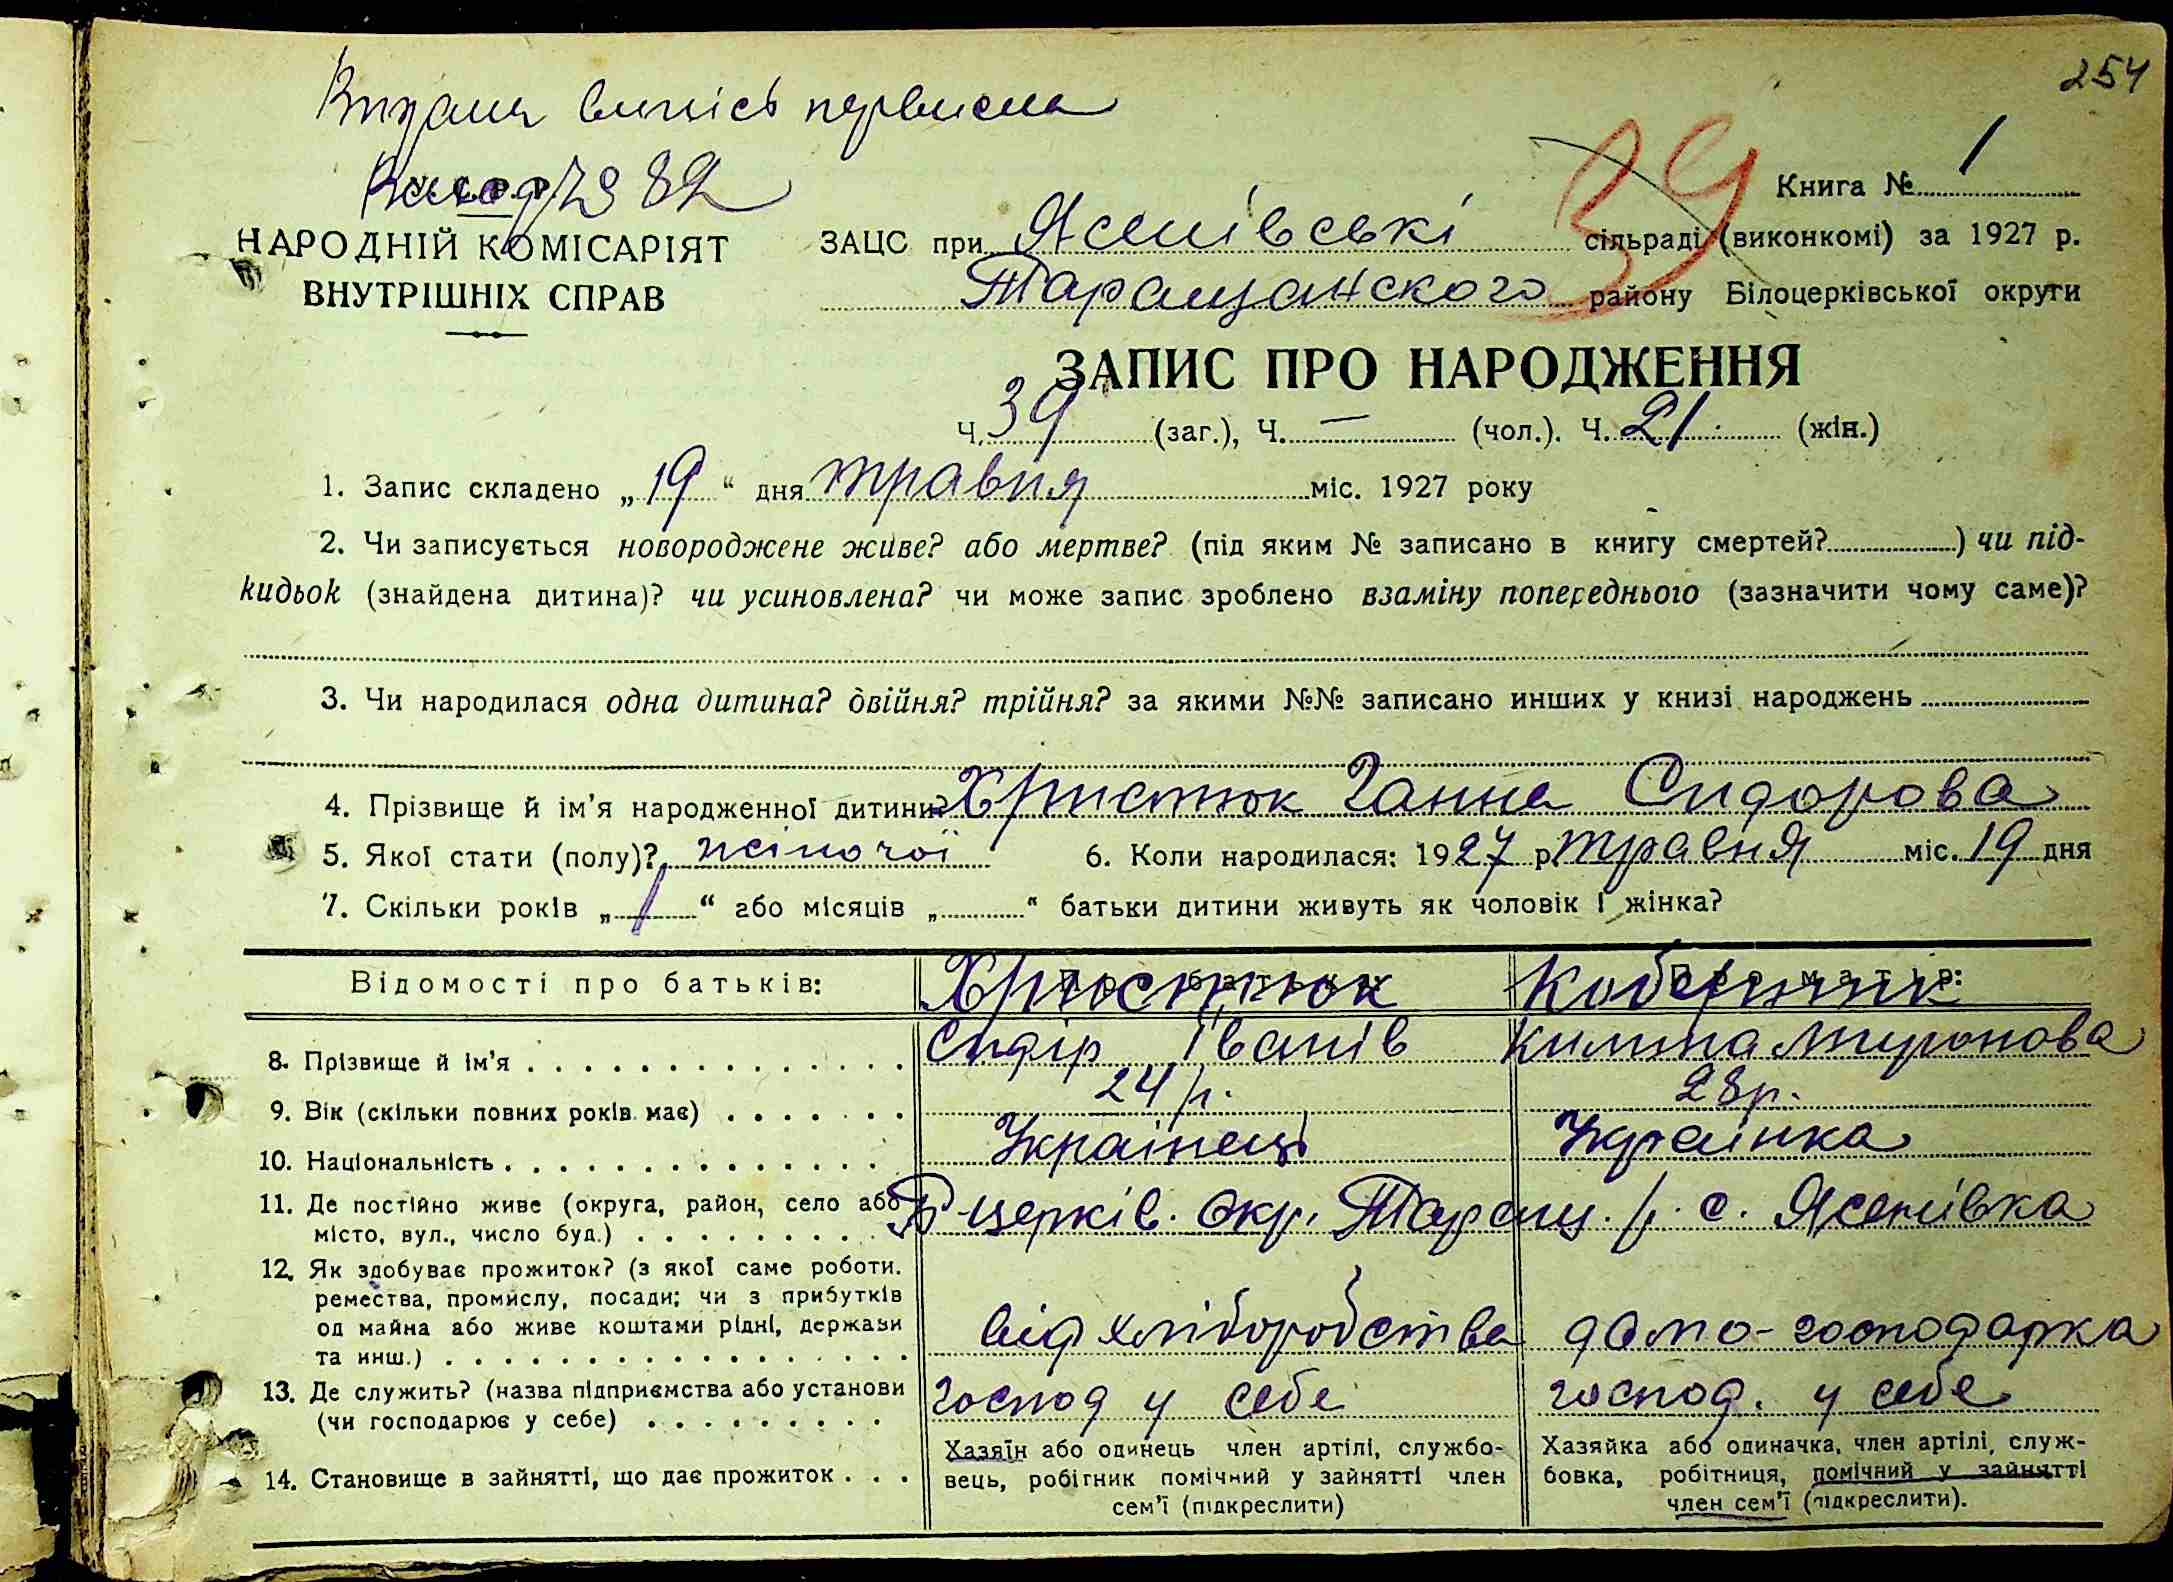 254
Видана випись первисна
Книга № 1
НАРОДНІЙ КОМІСАРІЯТ
ВНУТРІШНІХ СПРАВ
ЗАЦС при Ясенівські сільраді (виконкомі) за 1927 р.
39
Таращанского району Білоцерківської округи
ЗАПИС ПРО НАРОДЖЕННЯ
Ч. 39 (заг.), Ч. — (чол.). Ч. 21. (жін.)
1. Запис складено „19“ дня травня міс. 1927 року
2. Чи записується новороджене живе? або мертве? (під яким № записано в книгу смертей?) чи під-
кидьок (знайдена дитина)? чи усиновлена? чи може запис зроблено взаміну попереднього (зазначити чому саме)?
3. Чи народилася одна дитина? двійня? трійня? за якими №№ записано инших у книзі народжень
4. Прізвище й ім'я народженної дитини? Христюк Ганна Сидорова
5. Якої стати (полу)? жіночої 6. Коли народилася: 1927 р. травня міс. 19 дня
7. Скільки років „1“ або місяців „“ батьки дитини живуть як чоловік і жінка?
Відомості про батьків: Про батька: Христюк Про матір:
8. Прізвище й ім'я Сидір Іванів Килина Миронова
9. Вік (скільки повних років має) 24 р. 28 р.
10. Національність Українець Українка
11. Де постійно живе (округа, район, село або
місто, вул., число буд.) Б-церків. окр. Таращ. р. с. Ясенівка
12. Як здобуває прожиток? (з якої саме роботи.
ремества, промислу, посади; чи з прибутків
од майна або живе коштами рідні, держави
та инш.) від хліборобства домо-господарка
13. Де служить? (назва підприємства або установи
(чи господарює у себе) господ у себе господ. у себе
14. Становище в зайнятті, що дає прожиток
Хазяїн або одинець член артілі, службо-
вець, робітник помічний у зайнятті член
сем'ї (підкреслити)
Хазяйка або одиначка, член артілі, служ-
бовка, робітниця, помічний у зайнятті
член сем'ї (підкреслити).